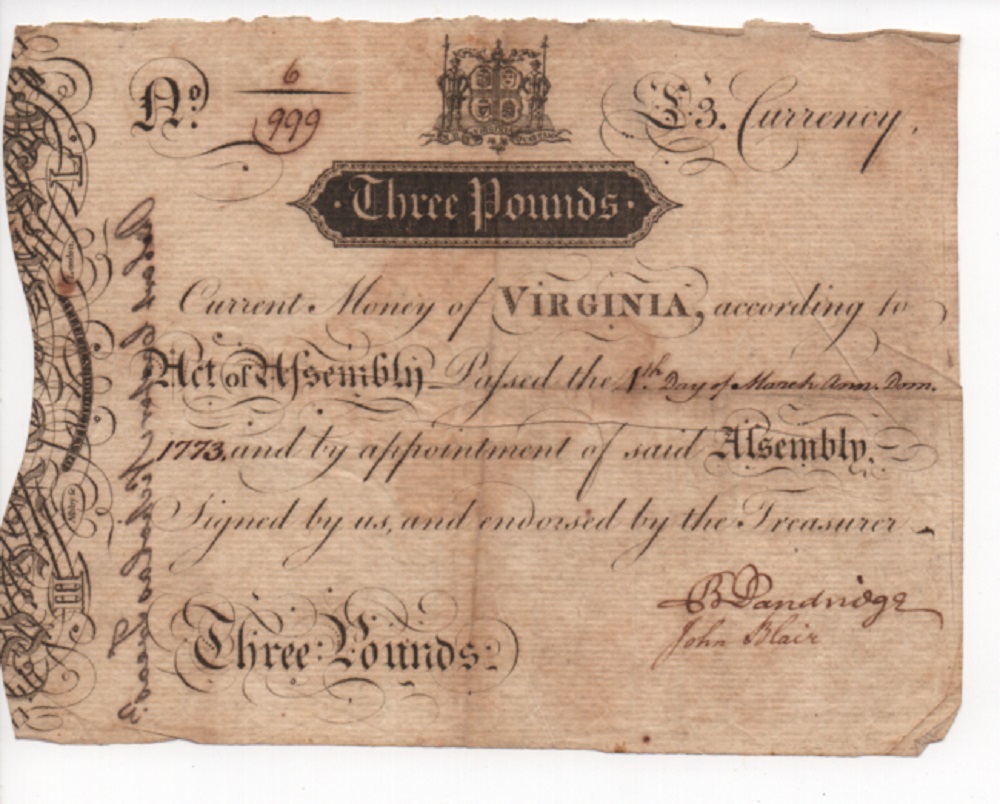 No. 6
999
£3. Currency,
·Three Pounds·
Current Money of VIRGINIA, according to
Act of Aſsembly Paſsed the 4.th Day of March Ann. Dom.
1773, and by appointment of said Aſsembly.
Signed by us, and endorsed by the Treasurer
Three Pounds:
B Dandridge
John Blair